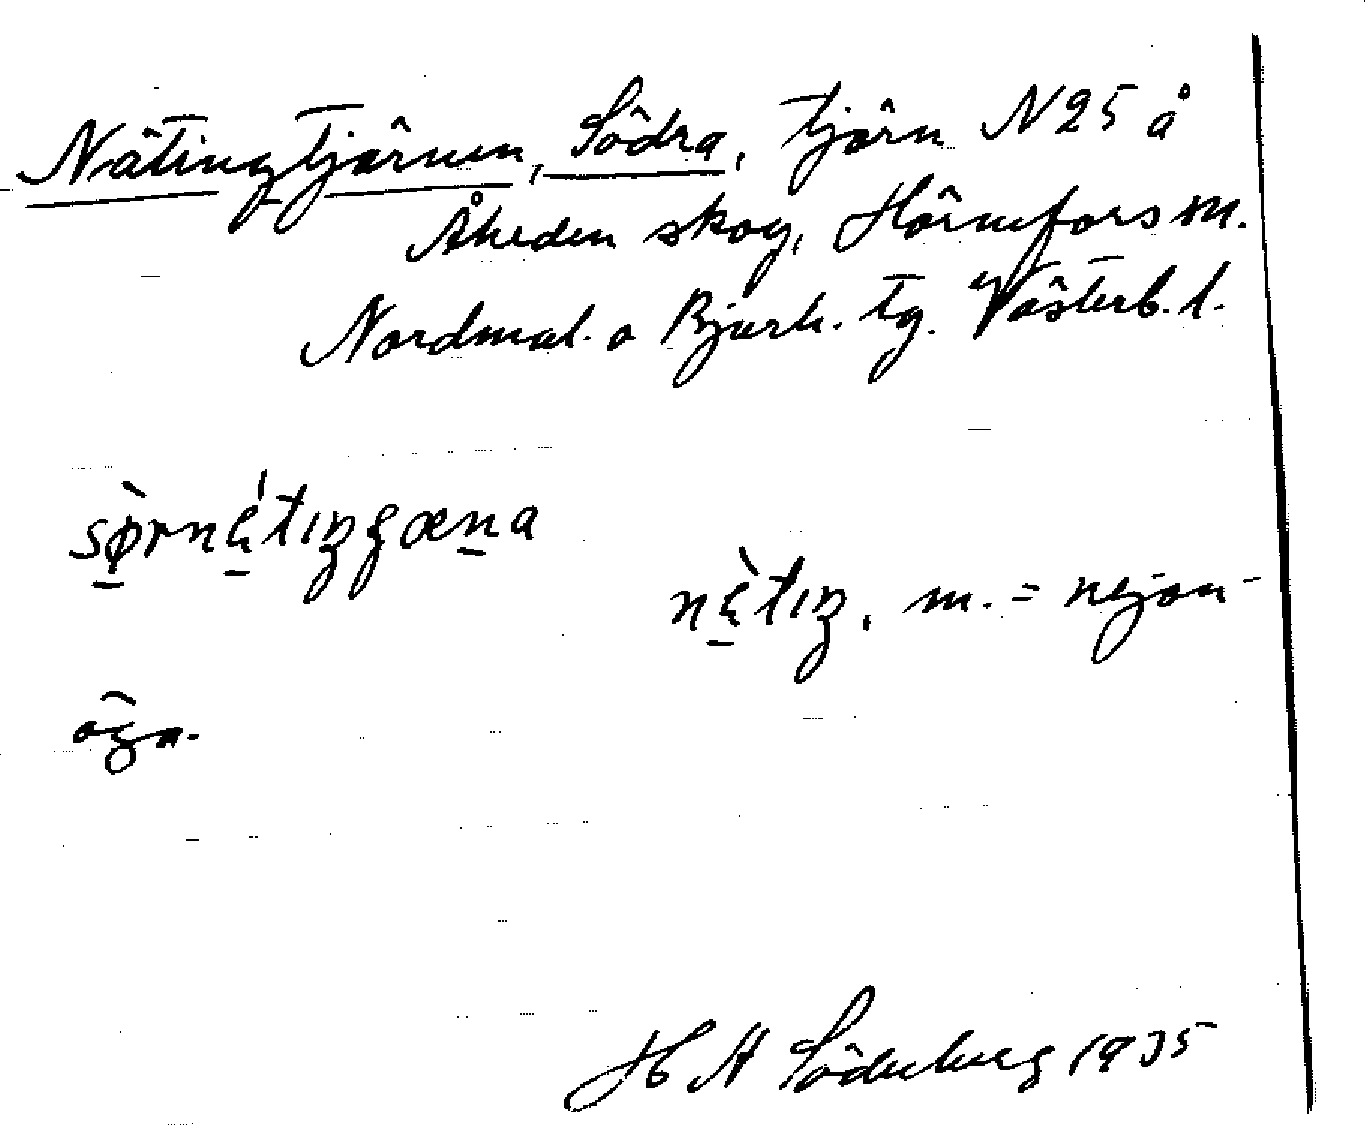 Nätingtjärnen, Södra, tjärn N 25 å
Åheden skog, Hörnefors sn.
Nordmal. o Bjurh. tg. Västerb. l.
nètıŋ, m. = nejon-
öga.
H A Söderberg 1935